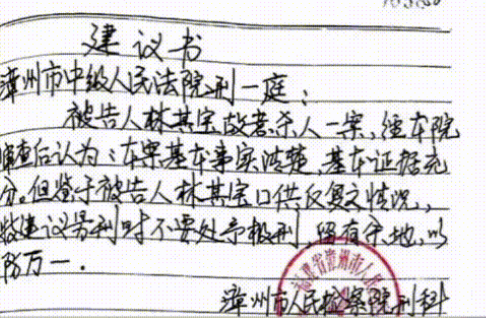 建议书
漳州市中级人民法院刑一庭：
被告人林其宝故意杀人一案，经本院
审查后认为：本案基本事实清楚，基本证据充
分。但鉴于被告人林其宝口供反复之情况，
故建议量刑时不要处予极刑，留有余地，以
防万一．
福建省漳州市人民
漳州市人民检察院刑科